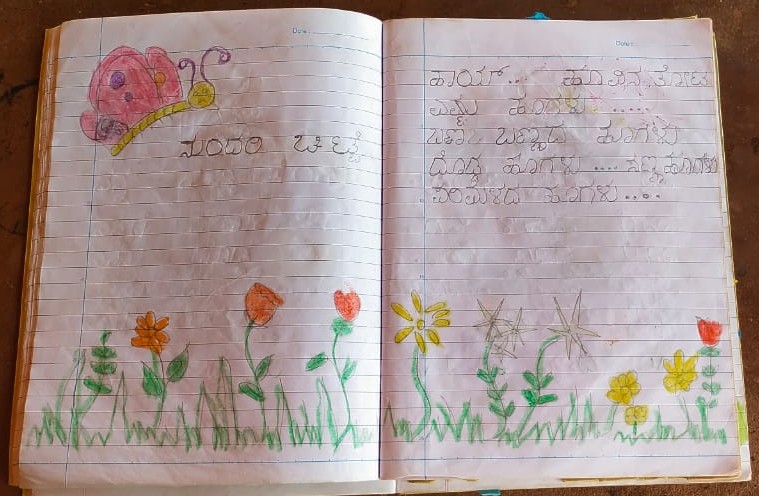 Date:
ಸುಂದರಿ ಚಿಟ್ಟೆ
Date:
ಹಾಯ್... ಹೂವಿನ ತೋಟ
ಎಷ್ಟು ಹೂಗಳು .....
ಬಣ್ಣ ಬಣ್ಣದ ಹೂಗಳು
ದೊಡ್ಡ ಹೂಗಳು .... ಸಣ್ಣ ಹೂಗಳು
ಪರಿಮಳದ ಹೂಗಳು ....